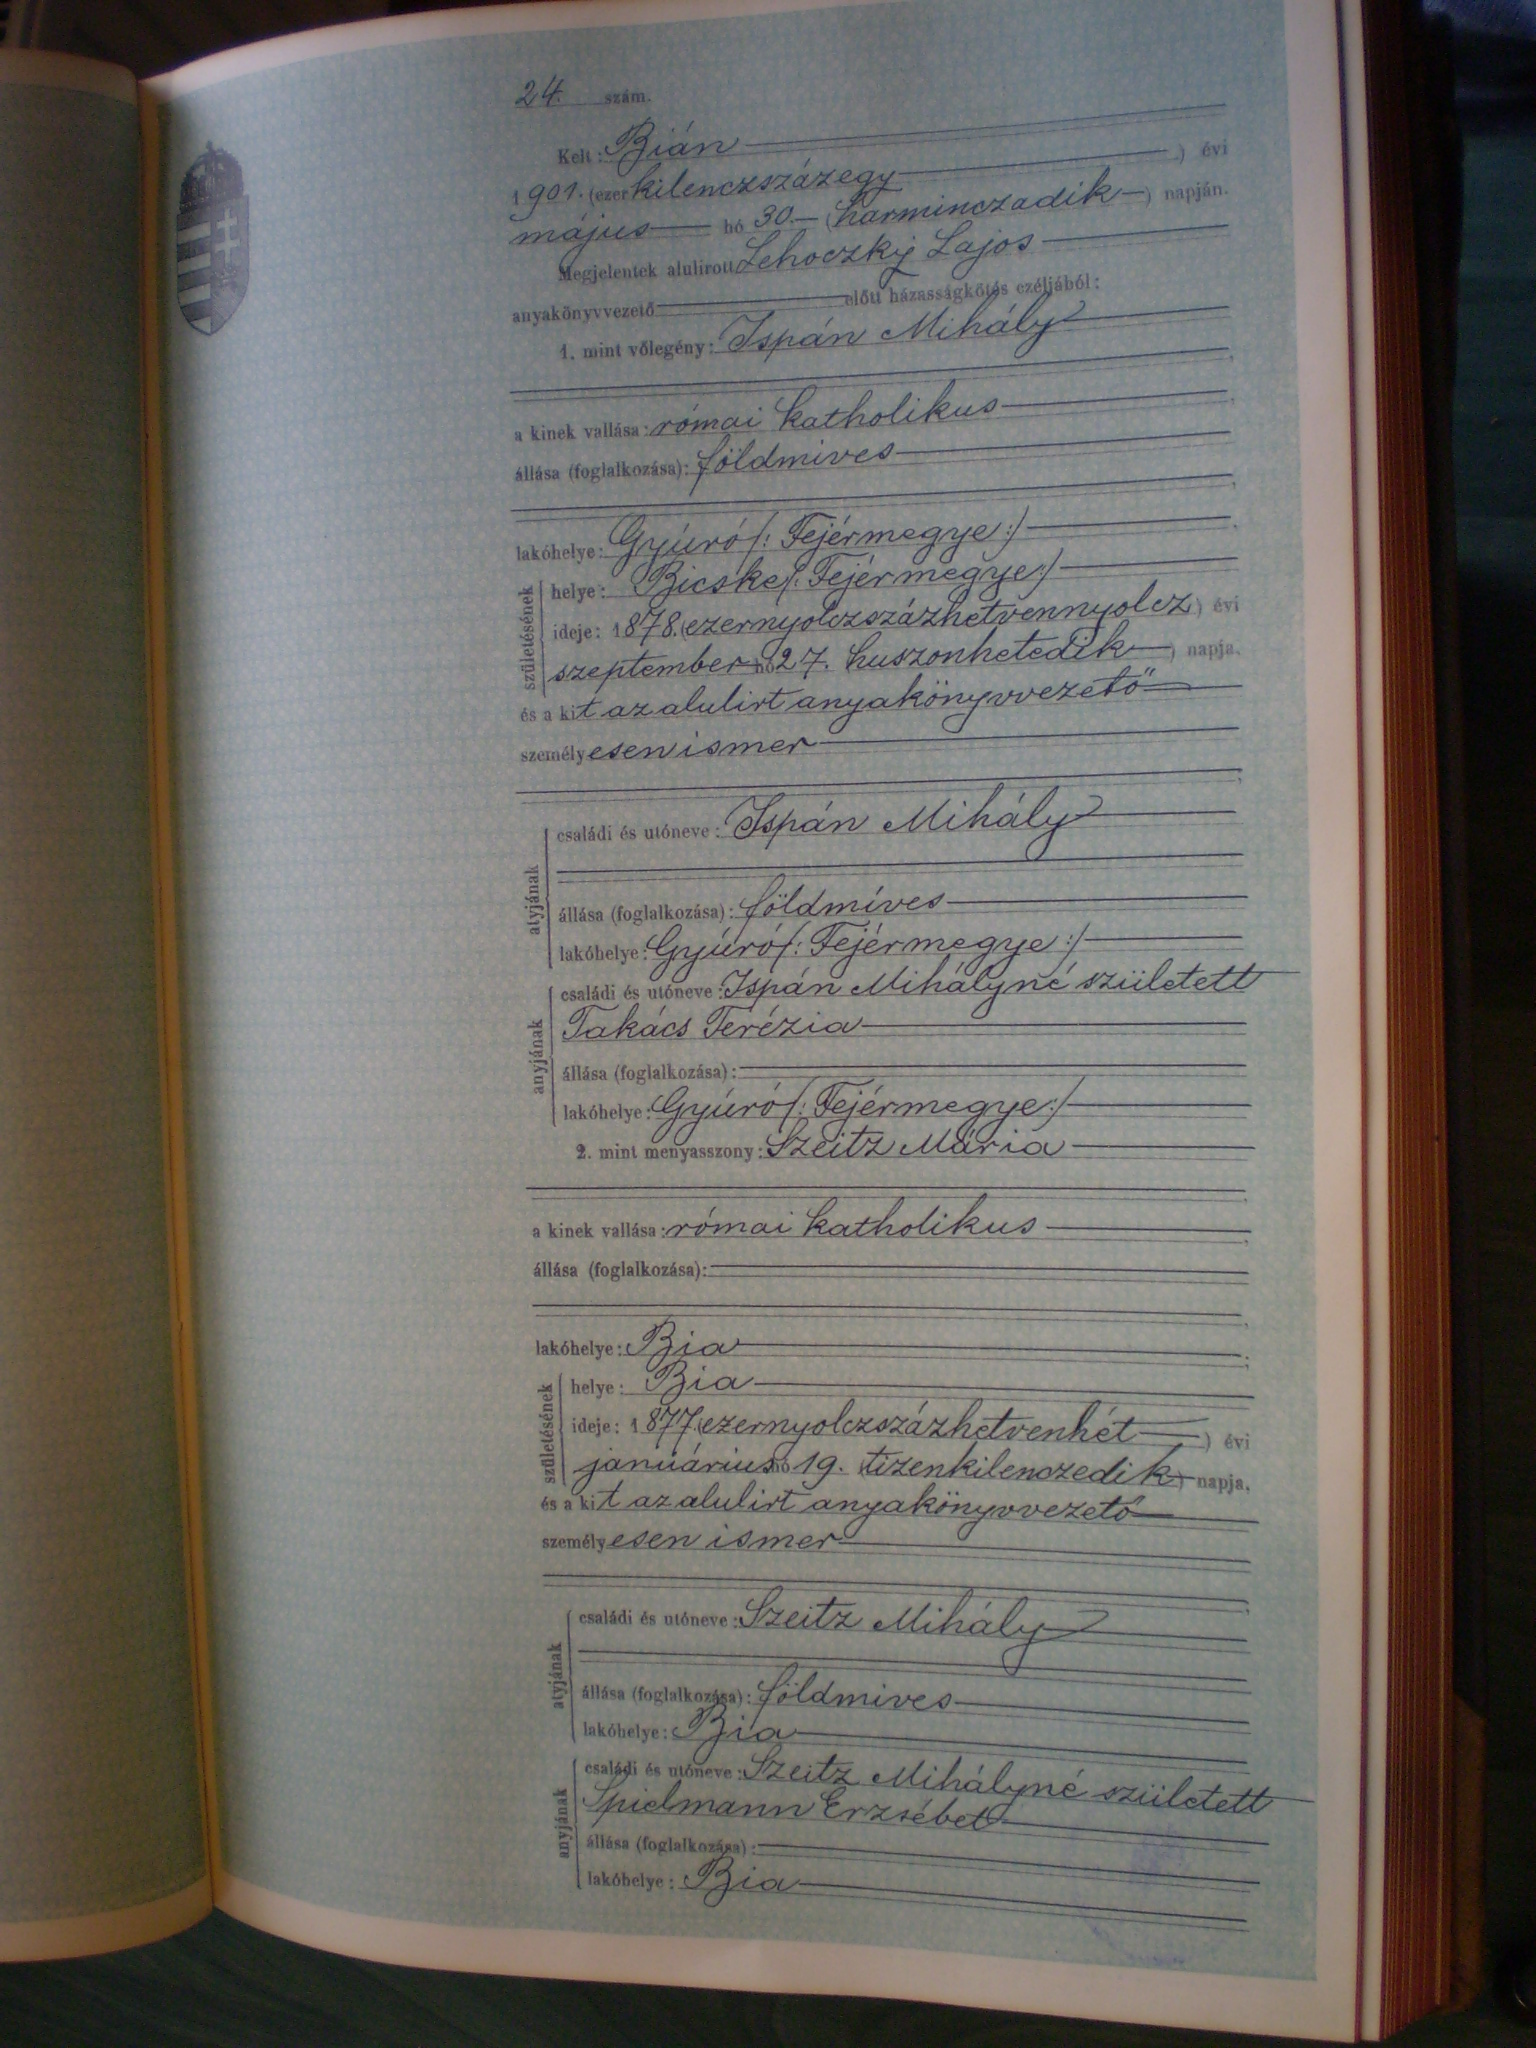 24. szám.
Kelt: Bián
1901. (ezer kilenczszázegy) évi
május hó 30 (harminczadik) napján.
Megjelentek alulirott Lehoczky Lajos
anyakönyvvezető előtt házasságkötés czéljából:
1. mint vőlegény: Ispán Mihály
a kinek vallása: római katholikus
állása (foglalkozása): földmives
lakóhelye: Gyúró /: Fejérmegye :/
születésének
helye: Bicske /: Fejérmegye :/
ideje: 1878. (ezernyolczszázhetvennyolcz) évi
szeptember hó 27. huszonhetedik) napja,
és a kit az alulirt anyakönyvvezető
személyesen ismer
atyjának
családi és utóneve: Ispán Mihály
állása (foglalkozása): földmíves
lakóhelye: Gyúró /: Fejérmegye :/
anyjának
családi és utóneve: Ispán Mihályné született
Takács Terézia
állása (foglalkozása):
lakóhelye: Gyúró /: Fejérmegye :/
2. mint menyasszony: Szeitz Mária
a kinek vallása: római katholikus
állása (foglalkozása):
lakóhelye: Bia
születésének
helye: Bia
ideje: 1877. (ezernyolczszázhetvenhét) évi
januárius hó 19. tizenkilenczedik) napja,
és a kit az alulirt anyakönyvvezető
személyesen ismer
atyjának
családi és utóneve: Szeitz Mihály
állása (foglalkozása): földmives
lakóhelye: Bia
anyjának
családi és utóneve: Szeitz Mihályné született
Spielmann Erzsébet
állása (foglalkozása):
lakóhelye: Bia